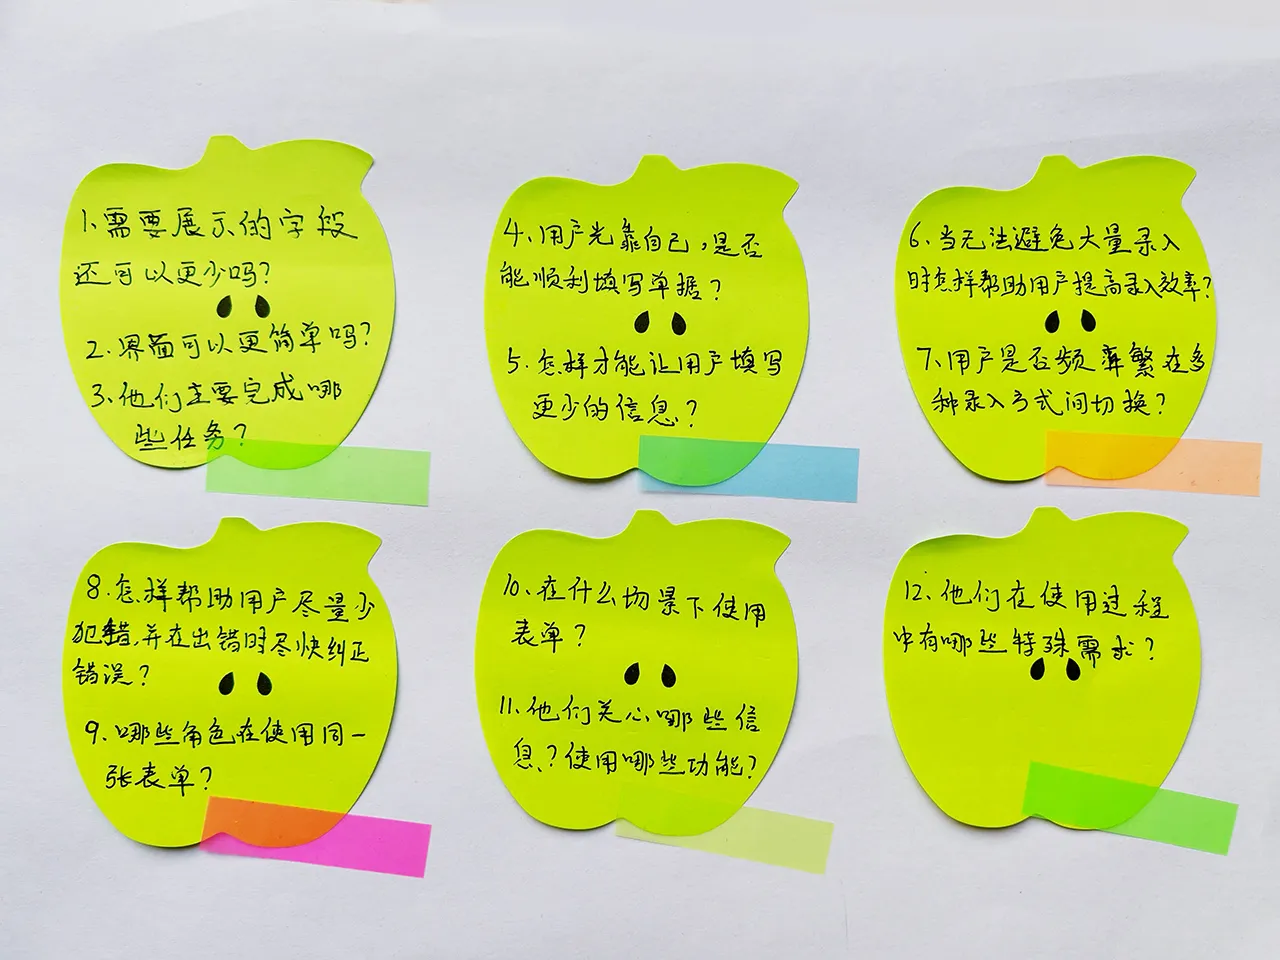 1、需要展示的字段
还可以更少吗?
2、界面可以更简单吗?
3、他们主要完成哪
些任务?
4、用户光靠自己,是否
能顺利填写单据?
5、怎样才能让用户填写
更少的信息?
6、当无法避免大量录入
时怎样帮助用户提高录入效率?
7、用户是否频繁在多
种录入方式间切换?
8、怎样帮助用户尽量少
犯错,并在出错时尽快纠正
错误?
9、哪些角色在使用同一
张表单?
10、在什么场景下使用
表单?
11、他们关心哪些信
息?使用哪些功能?
12、他们在使用过程
中有哪些特殊需求?